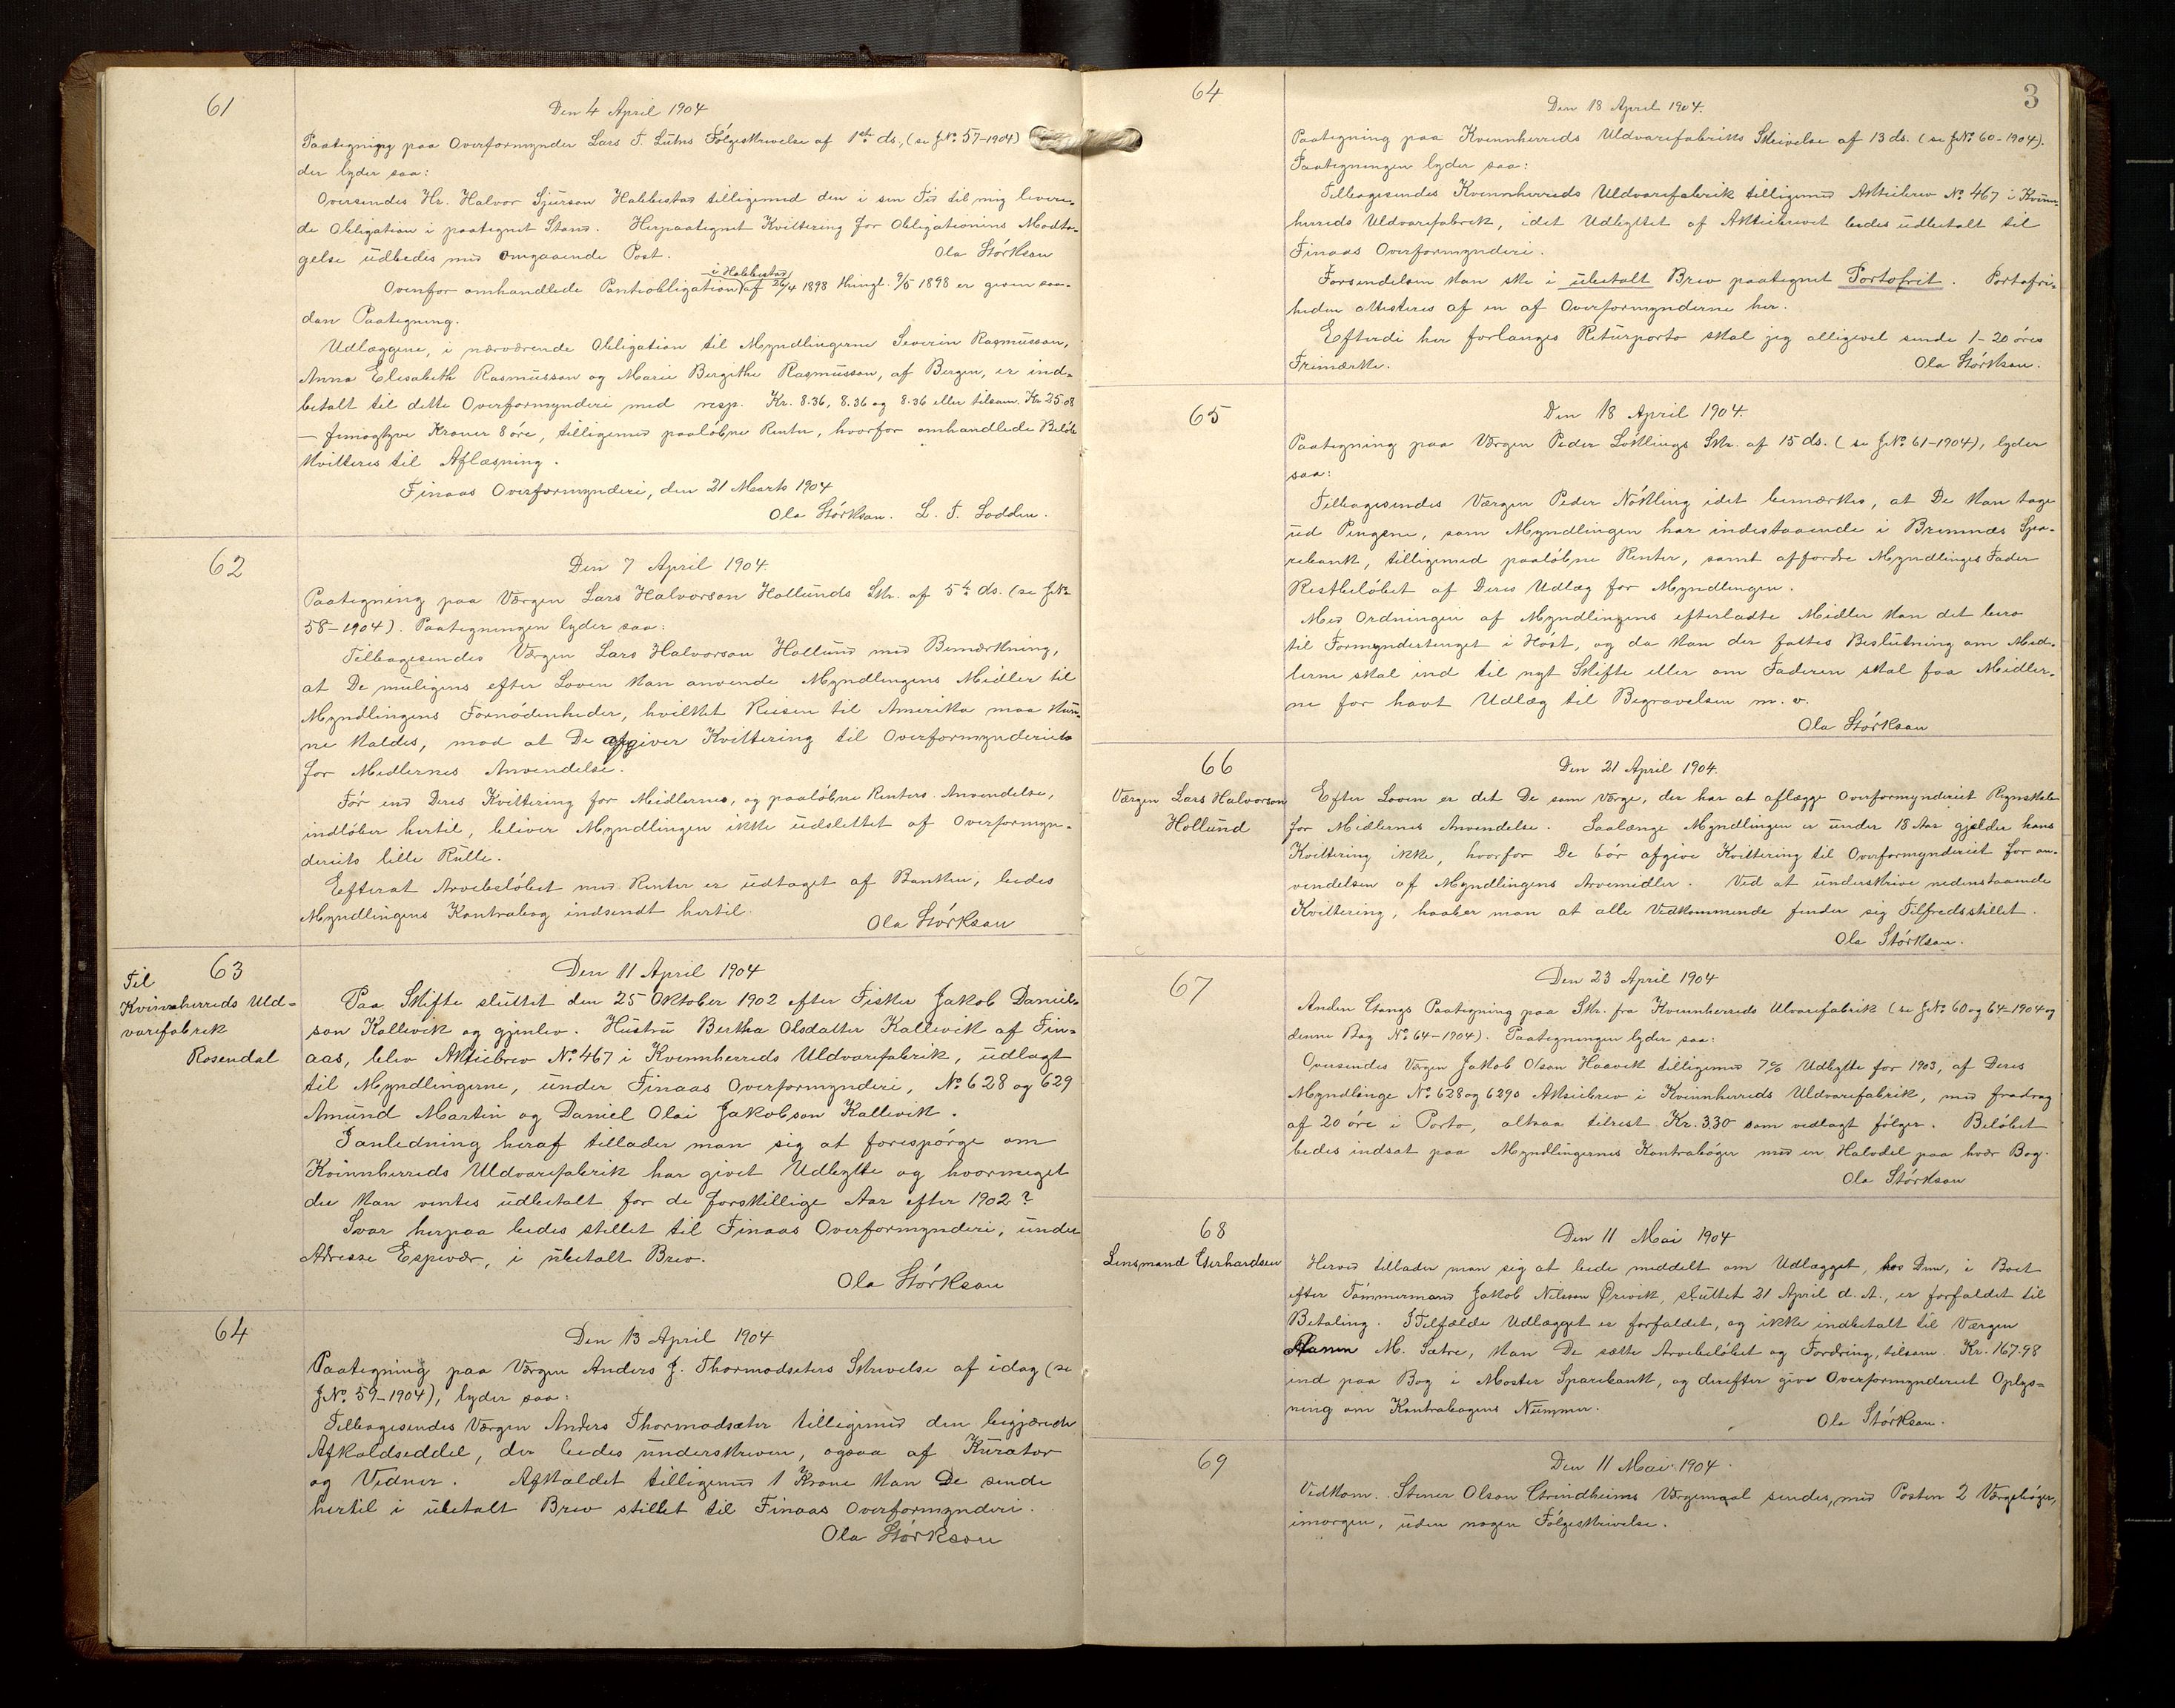 61
Den 4 April 1904
Paategning paa Overformynder Lars T. Lütnes Følgeskrivelse af 1ste ds., (se JNo 57-1904)
der lyder saa:
Oversendes Hr. Halvor Sjurson Habbestad tilligemed den i sin Tid til mig levere-
de Obligation i paategnet Stand. Herpaategnet Kvittering for Obligationens Modta-
gelse udbedes med omgaaende Post. Ola Størkson
i Habbestad
Ovenfor omhandlede Panteobligation af 26/4 1898 thingl. 9/5 1898 er given saa-
dan Paategning.
Udlæggene, i nærværende Obligation til Myndlingerne Severin Rasmusson,
Anna Elisabeth Rasmusson og Marie Bergithe Rasmusson, af Bergen, er ind-
betalt til dette Overformynderi med resp. Kr. 8.36, 8.36 og 8.36 eller tilsam. Kr 25.08
— femogtyve Kroner 8 øre, tilligemed paaløbne Renter, hvorfor omhandlede Beløb
kvitteres til Aflæsning.
Finaas Overformynderi, den 21 Marts 1904
Ola Størkson. L. T. Lodden.
62
Den 7 April 1904.
Paategning paa Værgen Lars Halvorson Hollunds Skr. af 5te ds. (se JNo
58-1904). Paategningen lyder saa:
Tilbagesendes Værgen Lars Halvorson Hollund med Bemærkning,
at De muligens efter Loven kan anvende Myndlingens Midler til
Myndlingens Fornødenheder, hvilket Reisen til Amerika maa kun-
ne kaldes, mod at De afgiver Kvittering til Overformynderiet
for Midlernes Anvendelse.
Før end Deres Kvittering for Midlernes, og paaløbne Renters Anvendelse,
indløber hertil, bliver Myndlingen ikke udslettet af Overformyn-
deriets lille Rulle.
Efterat Arvebeløbet med Renter er udtaget af Banken, bedes
Myndlingens Kontrabog indsendt hertil.
Ola Størkson
63
Til
Kvinnherreds Uld-
varefabrik
Rosendal
Den 11 April 1904
Paa Skifte sluttet den 25 Oktober 1902 efter Fisker Jakob Daniel-
son Kallevik og gjenlev. Hustru Bertha Olsdatter Kallevik af Fin-
aas, blev Aktiebrev No 467 i Kvinnherreds Uldvarefabrik, udlagt
til Myndlingerne, under Finaas Overformynderi, No 628 og 629
Amund Martin og Daniel Olai Jakobson Kallevik.
I anledning heraf tillader man sig at forespørge om
Kvinnherreds Uldvarefabrik har givet Udbytte og hvormeget
der kan ventes udbetalt for de forskillige Aar efter 1902?
Svar herpaa bedes stillet til Finaas Overformynderi, under
Adresse Espevær, i ubetalt Brev.
Ola Størkson
64
Den 13 April 1904
Paategning paa Værgen Anders J. Thormodsæters Skrivelse af idag (se
JNo 59-1904), lyder saa:
Tilbagesendes Værgen Anders Thormodsæter tilligemed den begjærede
Afkaldseddel, der bedes underskreven, ogsaa af Kurator
og Vedner. Afkaldet tilligemed 1 Krone kan De sende
hertil i ubetalt Brev stillet til Finaas Overformynderi.
Ola Størkson
3
64
Den 18 April 1904.
Paategning paa Kvinnherreds Uldvarefabriks Skrivelse af 13 ds. (se JNo 60-1904).
Paategningen lyder saa:
Tilbagesendes Kvinnherreds Uldvarefabrik tilligemed Aktiebrev No 467 i Kvinn-
herreds Uldvarefabrik, idet Udbyttet af Aktiebrevet bedes udbetalt til
Finaas Overformynderi.
Forsendelsen kan ske i ubetalt Brev paategnet Portofrit. Portofri-
heden attesteres af en af Overformynderne her.
Efterdi her forlanges Returporto skal jeg alligevel sende 1- 20 øres
Frimærke. Ola Størkson.
65
Den 18 April 1904.
Paategning paa Værgen Peder Løklings Skr. af 15 ds. (se JNo 61-1904), lyder
saa:
Tilbagesendes Værgen Peder Nökling idet bemærkes, at De kan tage
ud Pengene, som Myndlingen har indestaaende i Bremnæs Spa-
rebank, tilligemed paaløbne Renter, samt affordre Myndlinges Fader
Restbeløbet af Deres Udlæg for Myndlingen.
Med Ordningen af Myndlingens efterladte Midler kan det bero
til Formyndertinget i Høst, og da kan der fattes Beslutning om Mid-
lerne skal ind til nyt Skifte eller om Faderen skal faa Midler-
ne for havt Udlæg til Begravelsen m. v.
Ola Størkson
66
Værgen Lars Halvorson
Hollund
Den 21 April 1904.
Efter Loven er det De som Værge, der har at aflægge Overformynderiet Regnskab
for Midlernes Anvendelse. Saalænge Myndlingen er under 18 Aar gjælder hans
Kvittering ikke, hvorfor De bør afgive Kvittering til Overformynderiet for an-
vendelsen af Myndlingens Arvemidler. Ved at underskrive nedenstaaende
Kvittering, haaber man at alle Vedkommende finder sig Tilfredsstillet.
Ola Størkson.
67
Den 23 April 1904
Anden Gangs Paategning paa Skr. fra Kvinnherreds Ulvarefabrik (se JNo 60 og 64-1904 og
denne Bog No 64-1904). Paategningen lyder saa:
Oversendes Værgen Jakob Olson Haavik tilligemed 7% Udbytte for 1903, af Deres
Myndlinge No 628 og 629s Aksiebrev i Kvinnherreds Uldvarefabrik, med fradrag
af 20 øre i Porto, altsaa tilrest Kr. 3.30 som vedlagt følger. Beløbet
bedes indsat paa Myndlingernes Kontrabøger med en Halvdel paa hver Bog.
Ola Størkson
68
Lensmand Gerhardsen
Den 11 Mai 1904
Herved tillader man sig at bede meddelt om Udlægget, hos Dem, i Boet
efter Tømmermand Jakob Nilsson Ørevik, sluttet 21 April d. A., er forfaldet til
Betaling. I Tilfælde Udlægget er forfaldet, og ikke indbetalt til Værgen
M. Sætre, kan De sætte Arvebeløbet og Fordring, tilsam. Kr. 167.98
ind paa Bog i Moster Sparebank, og derefter give Overformynderiet Oplys-
ning om Kontrabogens Nummer.
Ola Størkson.
69
Den 11 Mai 1904.
Vedkom. Stener Olson Grindheims Værgemaal sendes, med Posten 2 Værgebøger,
imorgen, uden nogen Følgeskrivelse.